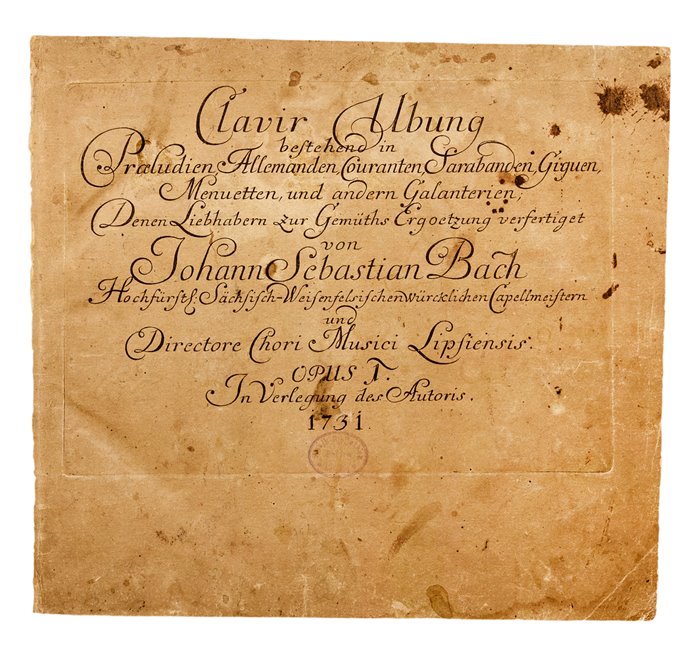 Clavir Ubung
bestehend in
Præludien, Allemanden, Couranten, Sarabanden, Giguen,
Menuetten, und andern Galanterien;
Denen Liebhabern zur Gemüths Ergoetzung verfertiget
von
Johann Sebastian Bach
Hochfürstl. Sächsisch-Weisenfelsischen würcklichen Capellmeistern
und
Directore Chori Musici Lipsiensis.
OPUS I.
In Verlegung des Autoris.
1731